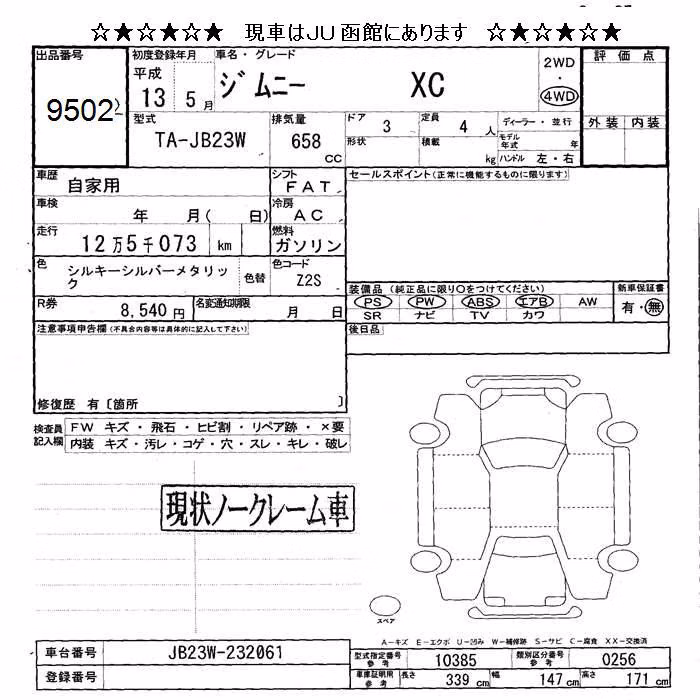 ☆★☆★☆★ 現車はJU函館にあります ☆★☆★☆★
出品番号 初度登録年月 車名・グレード 2WD 評価点
平成 ジムニー XC ・
9502 13 5月 4WD
型式 排気量 ドア 3 定員 4人 ディーラー・並行 外装 内装
TA-JB23W 658 形状 積載 モデル年式 年
cc kg ハンドル 左・右
車歴 自家用 シフト FAT セールスポイント(正常に機能するものに限ります)
車検 年 月( 日) 冷房 AC
走行 12万5千073 km 燃料 ガソリン
色 シルキーシルバーメタリック 色替 色コード Z2S
装備品(純正品に限り○をつけてください) 新車保証書
PS PW ABS エアB AW 有・無
R券 8,540円 名変通知期限 月 日 SR ナビ TV カワ
注意事項申告欄(不具合内容等は具体的に記入して下さい) 後日品
修復歴 有〔箇所 〕
検査員記入欄 FW キズ・飛石・ヒビ割・リペア跡・×要
内装 キズ・汚レ・コゲ・穴・スレ・キレ・破レ
現状ノークレーム車
スペア
A-キズ E-エクボ U-凹み W-補修跡 S-サビ C-腐食 XX-交換済
車台番号 JB23W-232061 型式指定番号参考 10385 類別区分番号参考 0256
登録番号 車庫証明用参考 長さ 339cm 幅 147cm 高さ 171cm